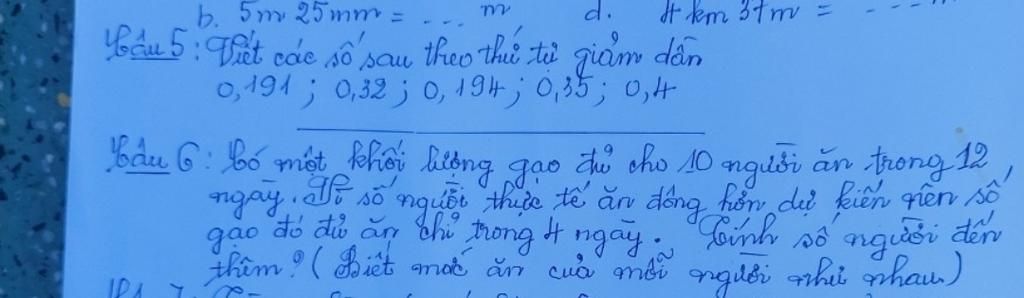 b. 5m 25mm = ... m d. 4 km 37m = ...m
Câu 5: Viết các số sau theo thứ tự giảm dần
0,191 ; 0,32 ; 0,194 ; 0,35 ; 0,4
Câu 6: Có một khối lượng gạo đủ cho 10 người ăn trong 12
ngày. Vì số người thực tế ăn đông hơn dự kiến nên số
gạo đó đủ ăn chỉ trong 4 ngày. Tính số người đến
thêm? (Biết mức ăn của mỗi người như nhau)